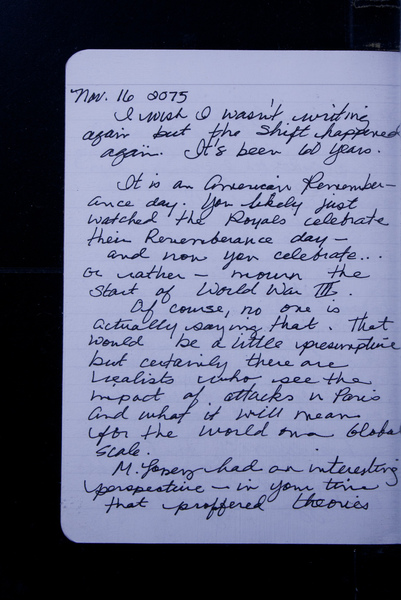 Nov. 16 2075
I wish I wasn't writing
again but the Shift happened
again. It's been 60 years.
It is an American Remember-
ance day. You likely just
watched the Royals celebrate
their Rememberance day -
and now you celebrate...
or rather - mourn the
start of World War III.
Of course, no one is
actually saying that. That
would be a little presumptive
but certainly there are
realists who see the
impact of attacks in Paris
and what it will mean
for the world on a Global
scale.
M. had an interesting
perspective - in your time
that proffered theories